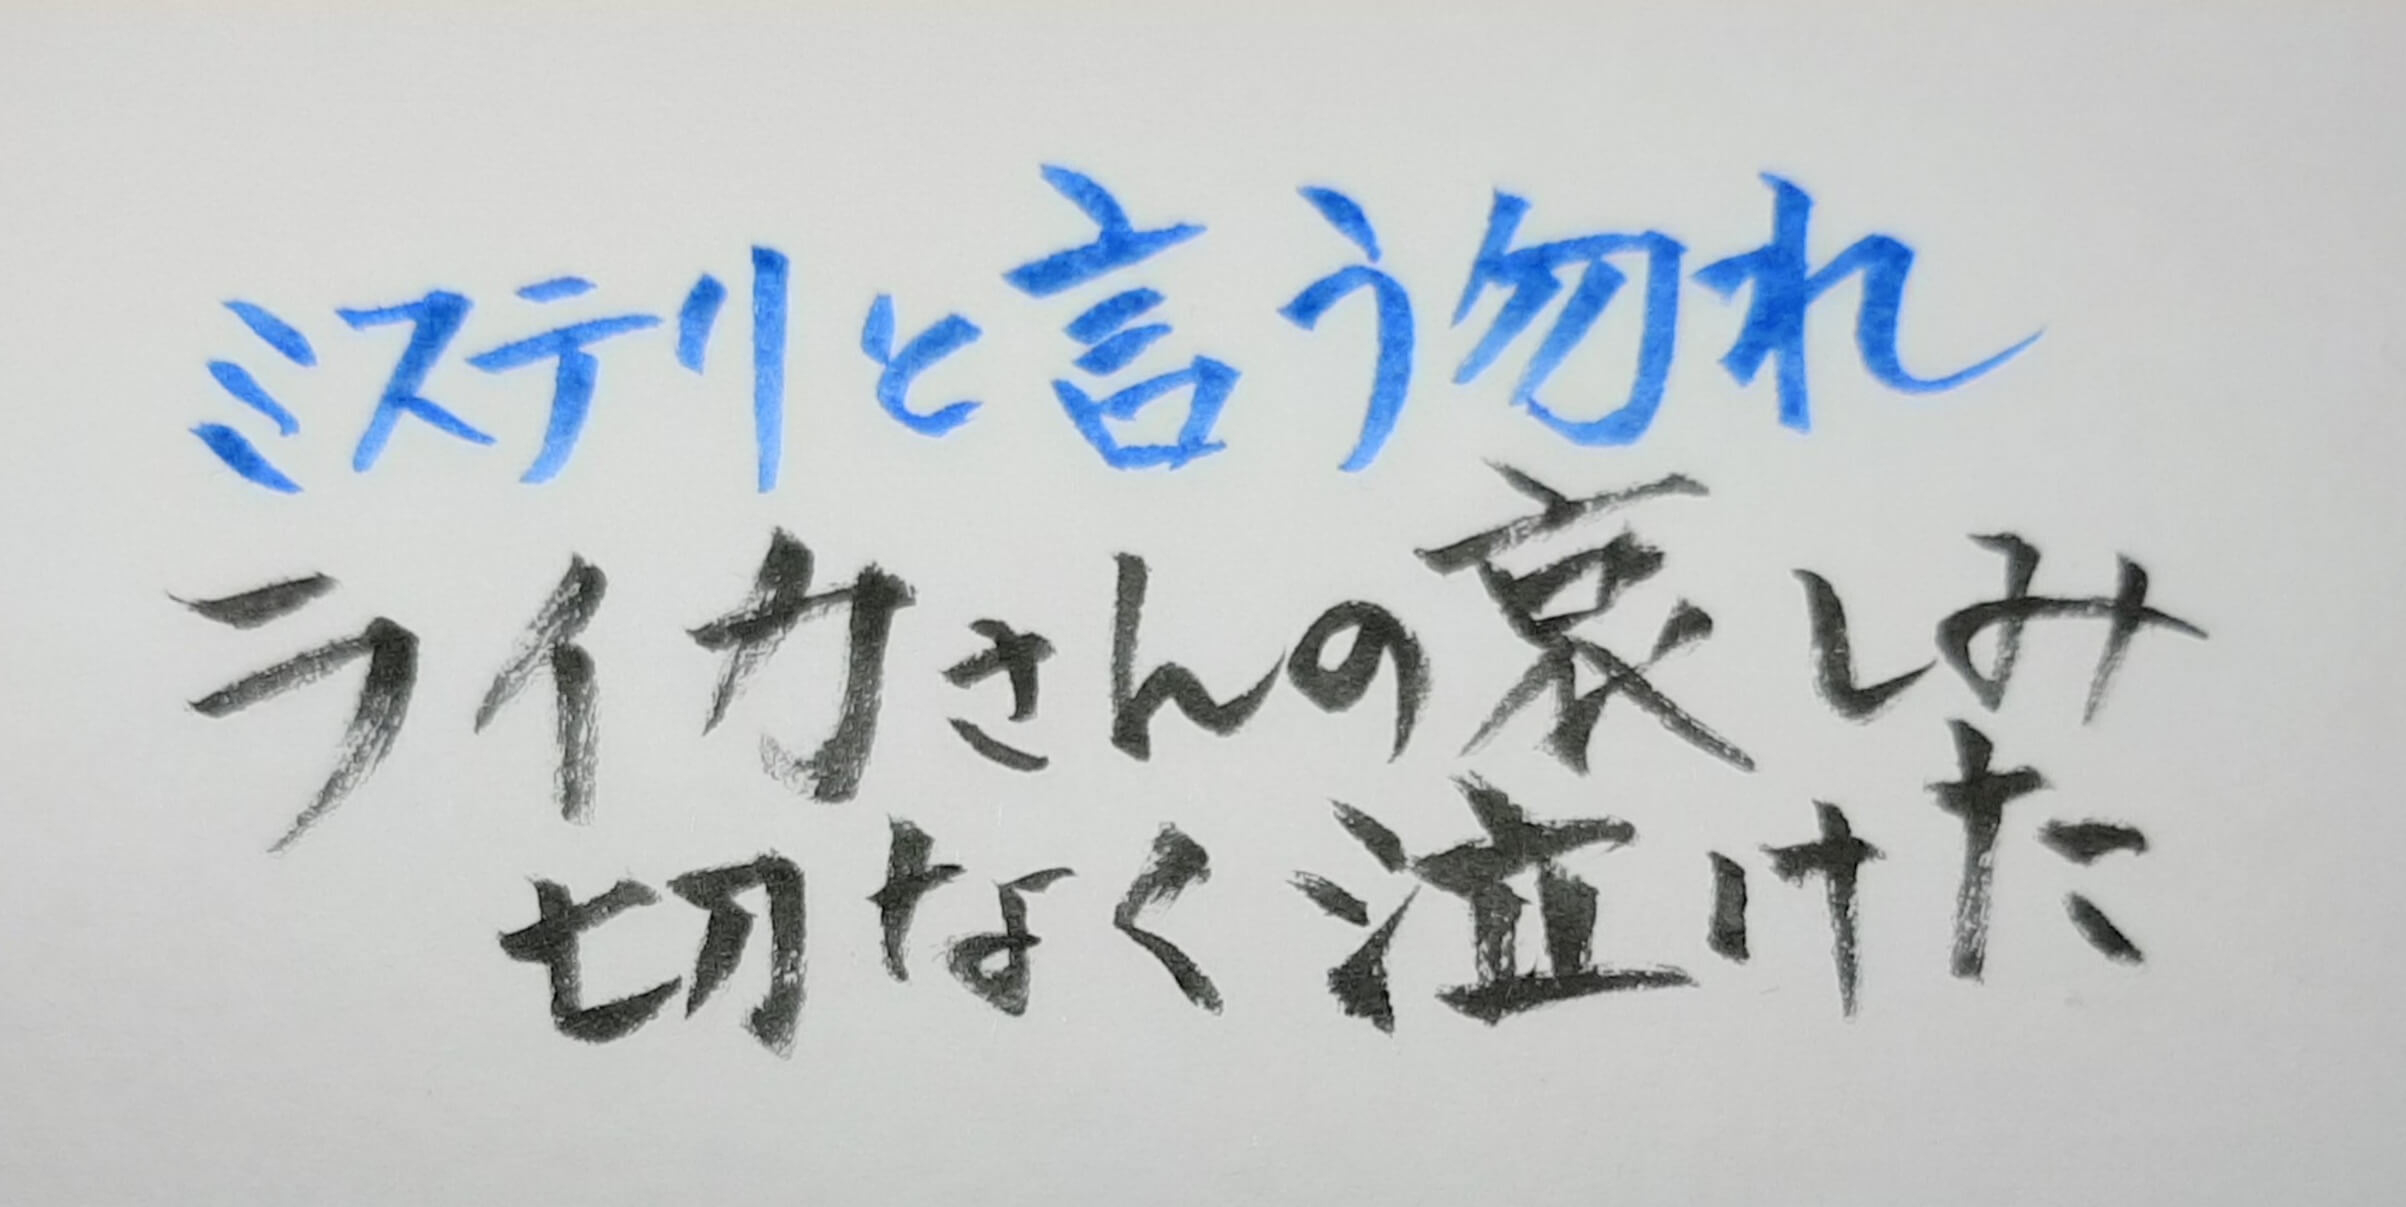 ミステリと言う勿れ
ライカさんの哀しみ
切なく泣けた